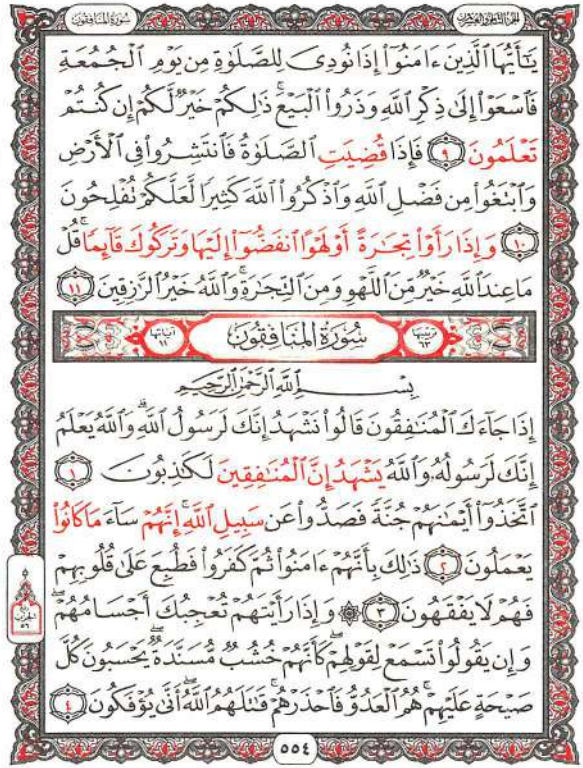 الجزء الثامن والعشرون
سُورَةُ المنَافِقُون
يَٰٓأَيُّهَا ٱلَّذِينَ ءَامَنُوٓا۟ إِذَا نُودِىَ لِلصَّلَوٰةِ مِن يَوْمِ ٱلْجُمُعَةِ
فَٱسْعَوْا۟ إِلَىٰ ذِكْرِ ٱللَّهِ وَذَرُوا۟ ٱلْبَيْعَ ۚ ذَٰلِكُمْ خَيْرٌ لَّكُمْ إِن كُنتُمْ
تَعْلَمُونَ ٩ فَإِذَا قُضِيَتِ ٱلصَّلَوٰةُ فَٱنتَشِرُوا۟ فِى ٱلْأَرْضِ
وَٱبْتَغُوا۟ مِن فَضْلِ ٱللَّهِ وَٱذْكُرُوا۟ ٱللَّهَ كَثِيرًا لَّعَلَّكُمْ تُفْلِحُونَ
١٠ وَإِذَا رَأَوْا۟ تِجَٰرَةً أَوْ لَهْوًا ٱنفَضُّوٓا۟ إِلَيْهَا وَتَرَكُوكَ قَآئِمًا ۚ قُلْ
مَا عِندَ ٱللَّهِ خَيْرٌ مِّنَ ٱللَّهْوِ وَمِنَ ٱلتِّجَٰرَةِ ۚ وَٱللَّهُ خَيْرُ ٱلرَّٰزِقِينَ ١١
ترتيبها ٦٣ سُورَةُ المنَافِقُون آياتها ١١
بِسْمِ ٱللَّهِ ٱلرَّحْمَٰنِ ٱلرَّحِيمِ
إِذَا جَآءَكَ ٱلْمُنَٰفِقُونَ قَالُوا۟ نَشْهَدُ إِنَّكَ لَرَسُولُ ٱللَّهِ ۗ وَٱللَّهُ يَعْلَمُ
إِنَّكَ لَرَسُولُهُۥ وَٱللَّهُ يَشْهَدُ إِنَّ ٱلْمُنَٰفِقِينَ لَكَٰذِبُونَ ١
ٱتَّخَذُوٓا۟ أَيْمَٰنَهُمْ جُنَّةً فَصَدُّوا۟ عَن سَبِيلِ ٱللَّهِ ۚ إِنَّهُمْ سَآءَ مَا كَانُوا۟
يَعْمَلُونَ ٢ ذَٰلِكَ بِأَنَّهُمْ ءَامَنُوا۟ ثُمَّ كَفَرُوا۟ فَطُبِعَ عَلَىٰ قُلُوبِهِمْ
فَهُمْ لَا يَفْقَهُونَ ٣ ۞ وَإِذَا رَأَيْتَهُمْ تُعْجِبُكَ أَجْسَامُهُمْ ۖ
وَإِن يَقُولُوا۟ تَسْمَعْ لِقَوْلِهِمْ ۖ كَأَنَّهُمْ خُشُبٌ مُّسَنَّدَةٌ ۖ يَحْسَبُونَ كُلَّ
صَيْحَةٍ عَلَيْهِمْ ۚ هُمُ ٱلْعَدُوُّ فَٱحْذَرْهُمْ ۚ قَٰتَلَهُمُ ٱللَّهُ ۖ أَنَّىٰ يُؤْفَكُونَ ٤
الحزب ٥٦
٥٥٤